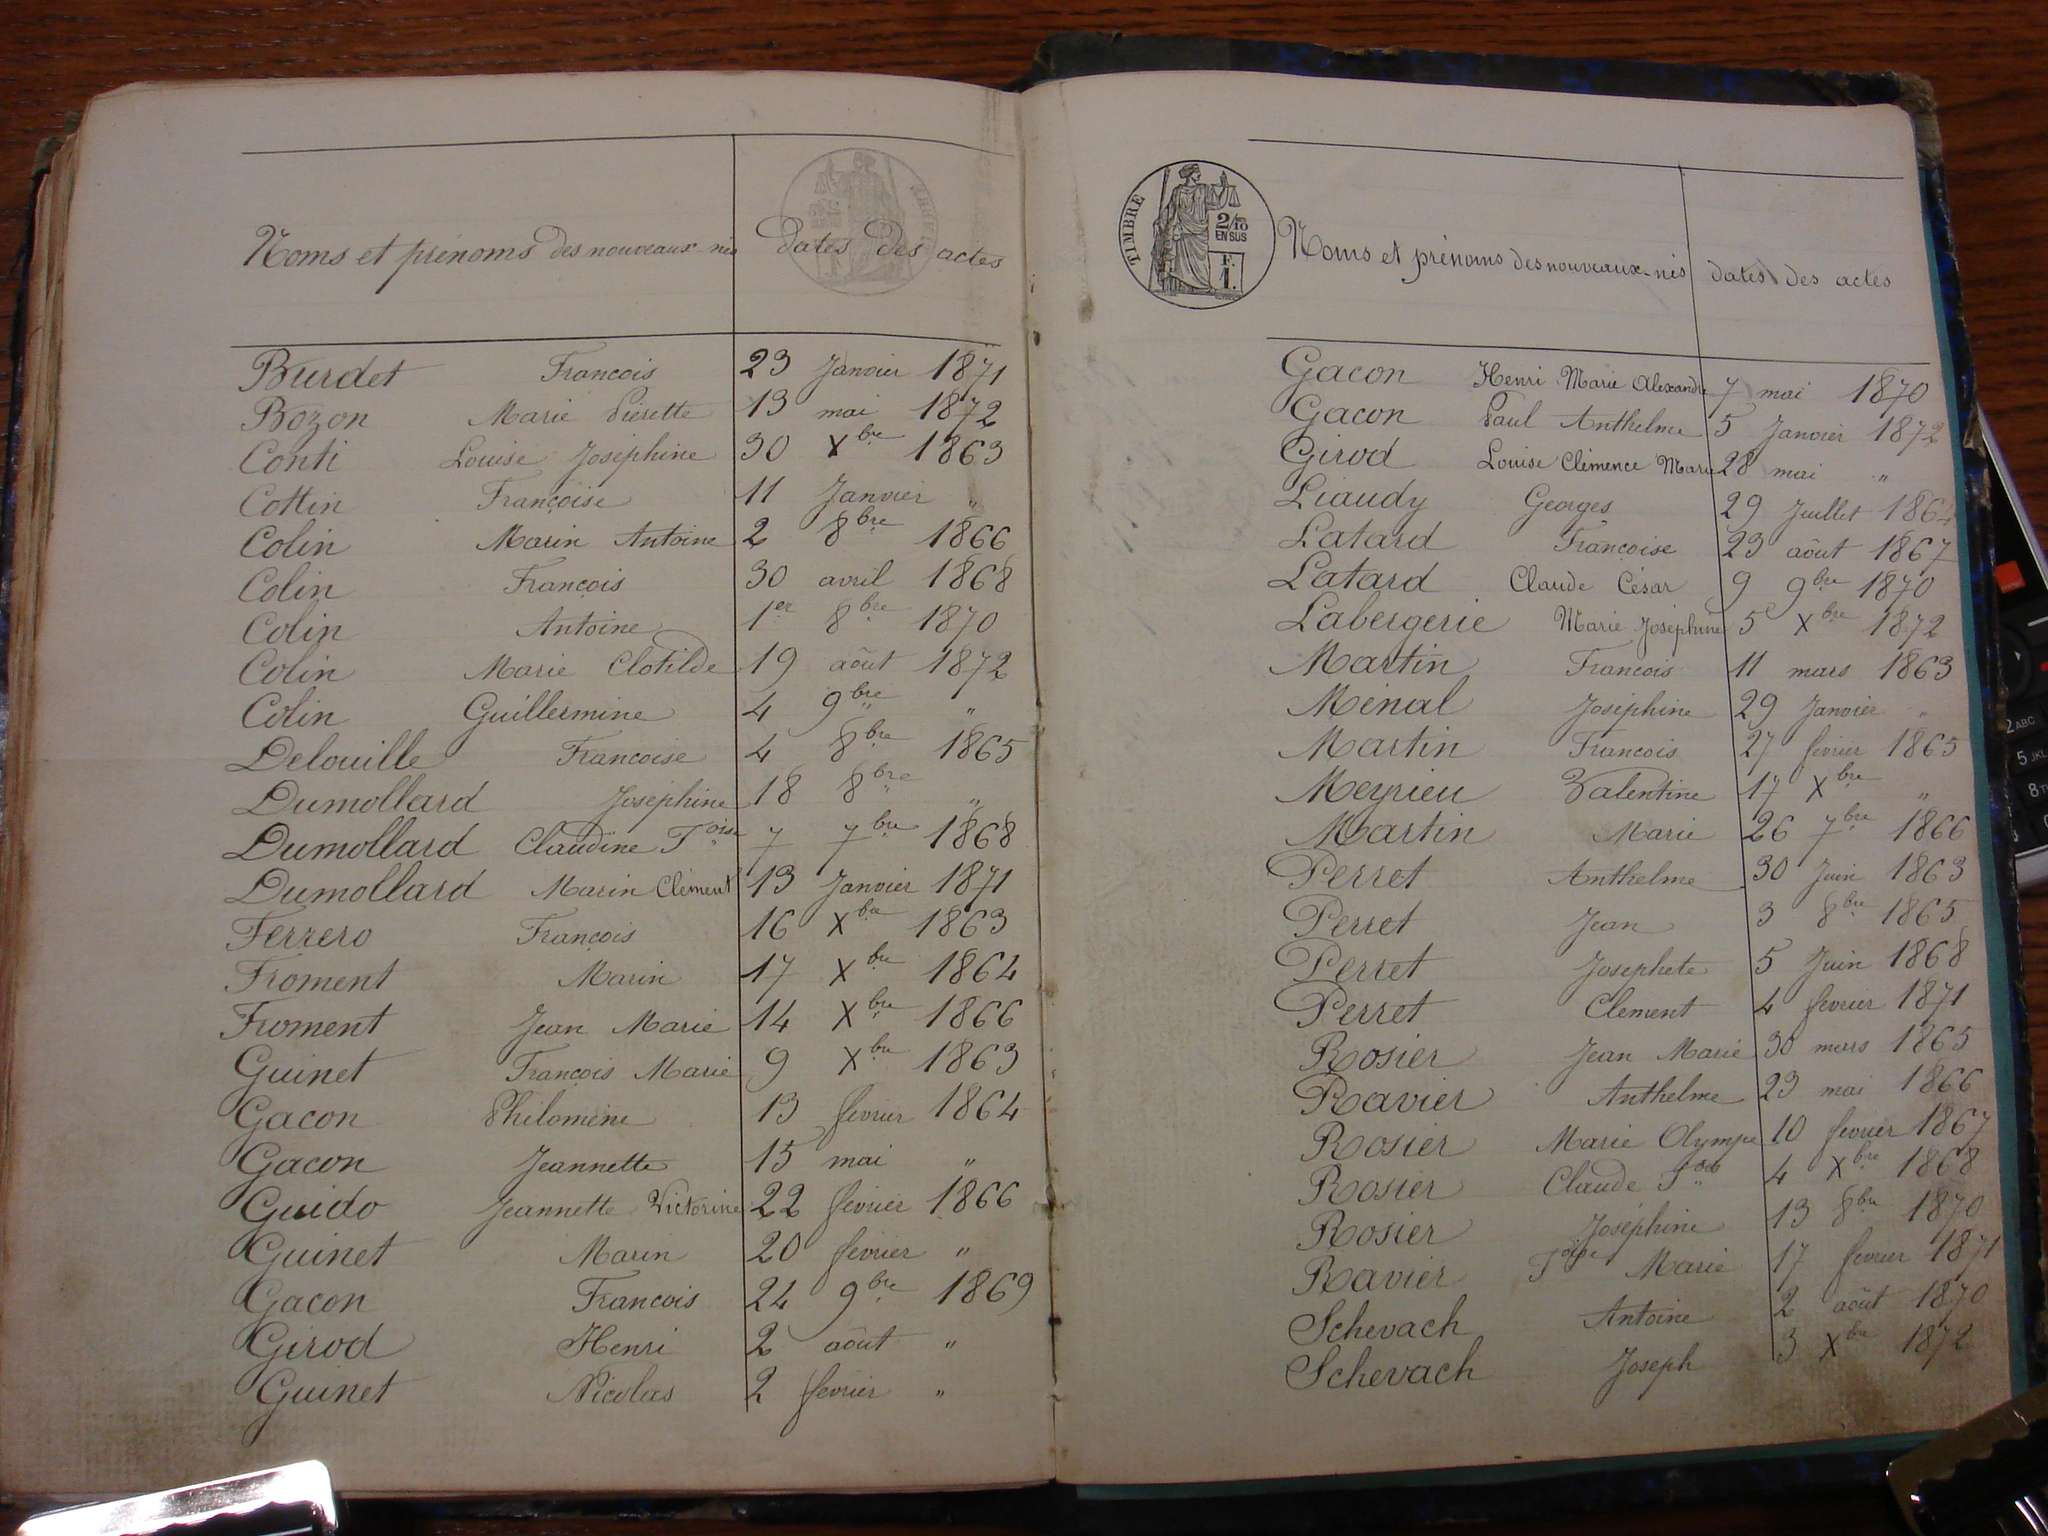 Noms et prénoms des nouveaux nés dates des actes
Burdet François 23 Janvier 1871
Bozon Marie Piérette 13 mai 1872
Conti Louise Joséphine 30 Xbre 1863
Cottin Françoise 11 Janvier "
Colin Marin Antoine 2 8bre 1866
Colin François 30 avril 1868
Colin Antoine 1er 8bre 1870
Colin Marie Clotilde 19 août 1872
Colin Guillermine 4 9bre "
Delouille Francoise 4 8bre 1865
Dumollard Joséphine 18 8bre "
Dumollard Claudine Foise 7 7bre 1868
Dumollard Marin Clément 13 Janvier 1871
Ferrero François 16 Xbre 1863
Froment Marin 17 Xbre 1864
Froment Jean Marie 14 Xbre 1866
Guinet François Marie 9 Xbre 1863
Gacon Philomène 13 fevrier 1864
Gacon Jeannette 15 mai "
Guido Jeannette Victorine 22 fevrier 1866
Guinet Marin 20 fevrier "
Gacon Francois 24 9bre 1869
Girod Henri 2 août "
Guinet Nicolas 2 fevrier "
TIMBRE
2/10
EN SUS
F.
1.
Noms et prénoms des nouveaux-nés dates des actes
Gacon Henri Marie Alexandre 7 mai 1870
Gacon Paul Anthelme 5 Janvier 1872
Girod Louise Clémence Marie 28 mai "
Liaudy Georges 29 Juillet 1864
Latard Françoise 23 août 1867
Latard Claude César 9 9bre 1870
Labergerie Marie Joséphine 5 Xbre 1872
Martin François 11 mars 1863
Menal Joséphine 29 Janvier "
Martin Francois 27 fevrier 1865
Meyrieu Valentine 17 Xbre "
Martin Marie 26 7bre 1866
Perret Anthelme 30 Juin 1863
Perret Jean 3 8bre 1865
Perret Josephete 5 Juin 1868
Perret Clement 4 fevrier 1871
Rosier Jean Marie 30 mars 1865
Ravier Anthelme 23 mai 1866
Rosier Marie Olympe 10 fevrier 1867
Rosier Claude 4 Xbre 1868
Rosier Joséphine 13 8bre 1870
Ravier Foise Marie 17 fevrier 1871
Schevach Antoine 2 août 1870
Schevach Joseph 3 Xbre 1872